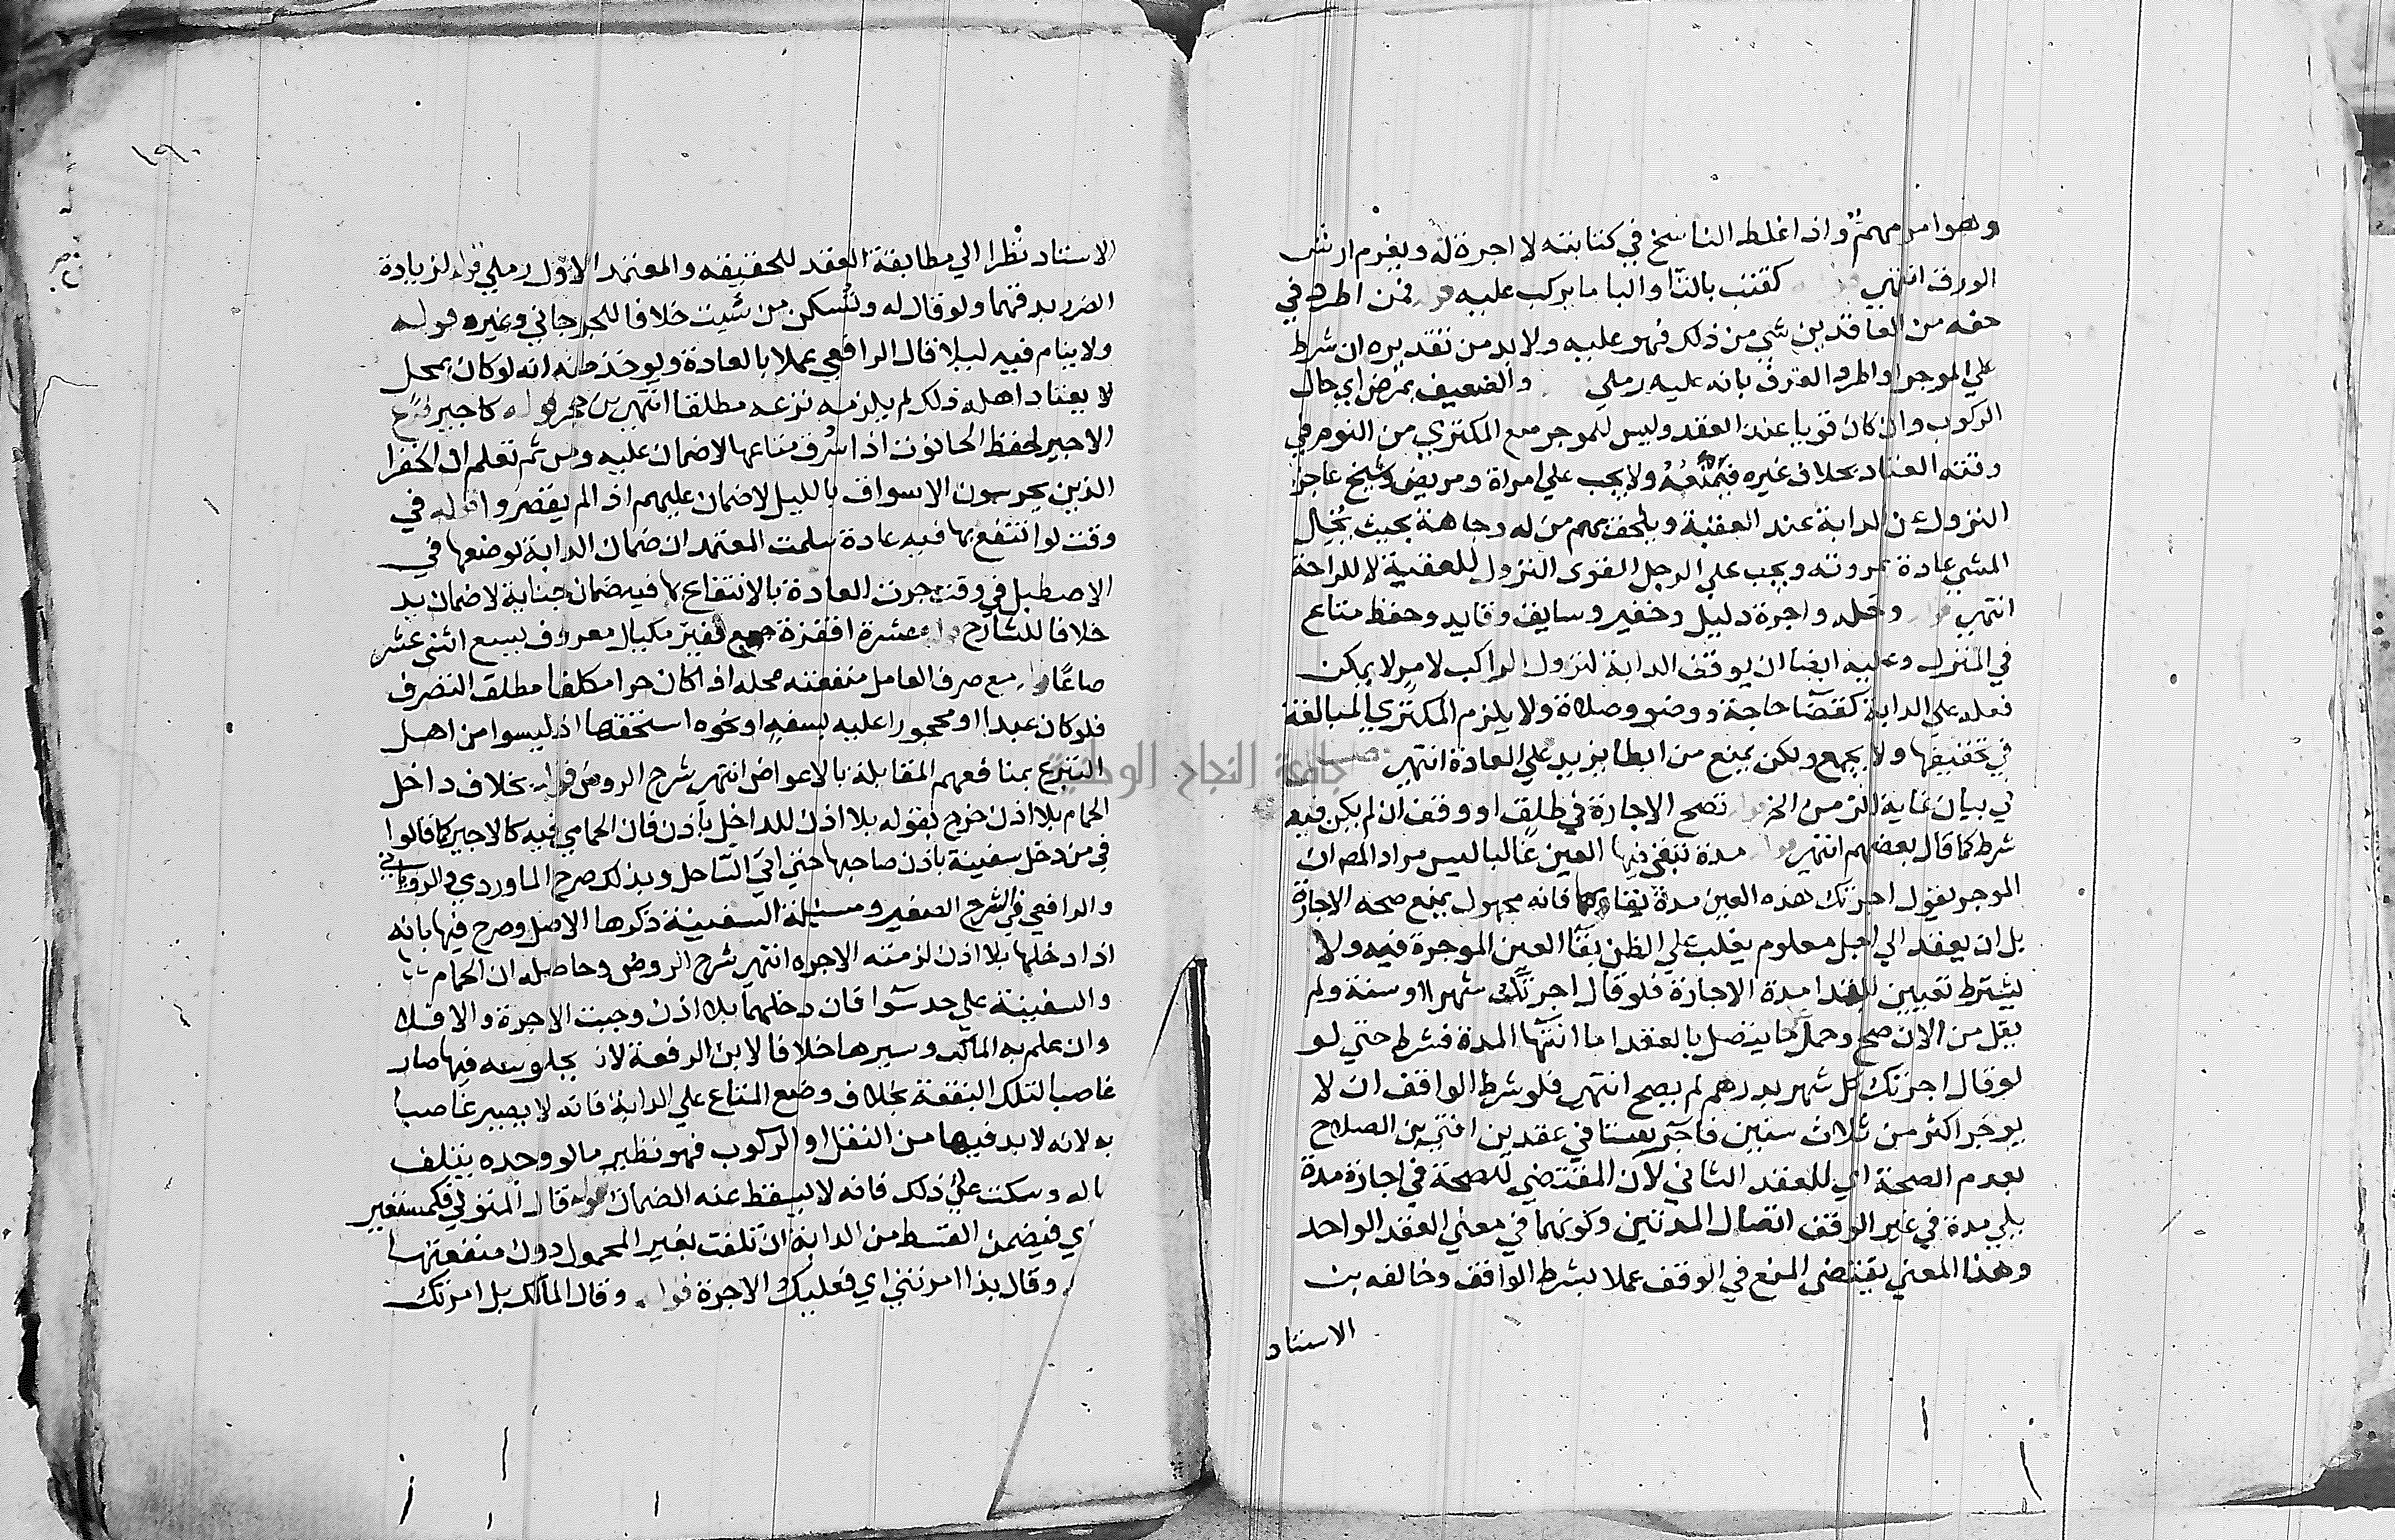 وهو امر مهم واذا غلط الناسخ في كتابته لا اجرة له ويغرم ارش
الورق انتهي قوله كقتب بالتا والبا ما يركب عليه قوله فمن اطرد في
حقه من العاقدين شي من ذلك فهو عليه ولا بد من تقديره ان شرط
علي الموجر او اطرد العرف بانه عليه رملي والضعيف بمرض اي حال
الركوب وان كان قويا عند العقد وليس للموجر منع المكتري من النوم في
وقته المعتاد بخلاف غيره فيمنعه ولا يجب علي امراة ومريض وشيخ عاجز
النزول عن الدابة عند العقبة ويلحق بهم من له وجاهة بحيث يخل
المشي عادة بمروته ويجب علي الرجل القوي النزول للعقبة لا للراحة
انتهي قوله وحمله واجرة دليل وخفير وسايق وقايد وحفظ متاع
في المنزل وعليه ايضا ان يوقف الدابة لنزول الراكب لامر لا يمكن
فعله علي الدابة كقضا حاجة ووضو وصلاة ولا يلزم المكتري المبالغة
في تخفيفها ولا يجمع ولكن يمنع من ابطا يزيد علي العادة انتهي
في بيان غاية الزمن الخ قوله تصح الاجارة في طلق او وقف ان لم يكن فيه
شرط كما قال بعضهم انتهي قوله مدة تبقي فيها العين غالبا ليس مراد المص ان
الموجر يقول اجرتك هذه العين مدة بقايها فانه مجهول يمنع صحه الاجارة
بل ان يعقد الي اجل معلوم يغلب علي الظن بقا العين الموجرة فيه ولا
يشترط تعيين ابتدا مدة الاجارة فلو قال اجرتك شهرا او سنة ولم
يقل من الان صح وحمل ما يتصل بالعقد اما انتها المدة فشرط حتي لو
لو قال اجرتك كل شهر بدرهم لم يصح انتهي فلو شرط الواقف ان لا
يوجر اكثر من ثلاث سنين فاجر ستا في عقدين افتي بن الصلاح
بعدم الصحة اي للعقد الثاني لان المقتضي للصحة في اجارة مدة
يلي مدة في غير الوقف اتصال المدتين وكونهما في معني العقد الواحد
وهذا المعني يقتضي المنع في الوقف عملا بشرط الواقف وخالفه بن
الاستاد
١٩٠
الاستاد نظرا الي مطابقة العقد للحقيقه والمعتمد الاول رملي قوله لزيادة
الضرر بدقهما ولو قال له وتسكن من شيت خلافا للجرجاني وغيره قوله
ولا ينام فيه ليلا قال الرافعي عملا بالعادة ويوخذ منه انه لو كان بمحل
لا يعتاد اهله ذلك لم يلزمه نزعه مطلقا انتهي بن حجر قوله كاجير
الاجير لحفظ الحانوت اذا سرق متاعها لا ضمان عليه ومن ثم تعلم ان الخفرا
الذين يحرسون الاسواق بالليل لا ضمان عليهم اذا لم يقصروا قوله في
وقت لو انتفع بها فيه عادة سلمت المعتمد ان ضمان الدابة لوضعها في
الاصطبل في وقت جرت العادة بالانتفاع بها فيه ضمان جناية لا ضمان يد
خلافا للشارح قوله عشرة اقفزة جمع قفيز مكيال معروف يسع اثني عشر
صاعا قوله مع صرف العامل منفعته محله اذا كان حرا مكلفا مطلق التصرف
فلو كان عبدا او محجورا عليه بسفه او نحوه استحقها اذ ليسوا من اهل
التبرع بمنافعهم المقابلة بالاعواض انتهي شرح الروض قوله بخلاف داخل
الحمام بلا اذن خرج بقوله بلا اذن للداخل باذن فان الحمامي فيه كالاجير كما قالوا
في من دخل سفينة باذن صاحبها حتي اتي الساحل وبذلك صرح الماوردي والروياني
والرافعي في الشرح الصغير ومسئلة السفينة ذكرها الاصل وصرح فيها بانه
اذا دخلها بلا اذن لزمته الاجره انتهي شرح الروض وحاصله ان الحمام
والسفينة علي حد سوا فان دخلهما بلا اذن وجبت الاجرة والا فلا
وان علم به المالك وسيرها خلافا لابن الرفعة لان بجلوسه فيها صار
غاصبا لتلك البقعة بخلاف وضع المتاع علي الدابة فانه لا يصير غاصبا
به لانه لا بد فيها من النقل او الركوب فهو نظير ما لو وجده يتلف
ماله وسكت علي ذلك فانه لا يسقط عنه الضمان قوله قال المتولي فكمستعير
اي فيضمن القسط من الدابة ان تلفت بغير المحمول دون منفعتها
وقال بذا امرتني اي فعليك الاجرة قوله وقال المالك بل امرتك
جامعة النجاح الوطنية